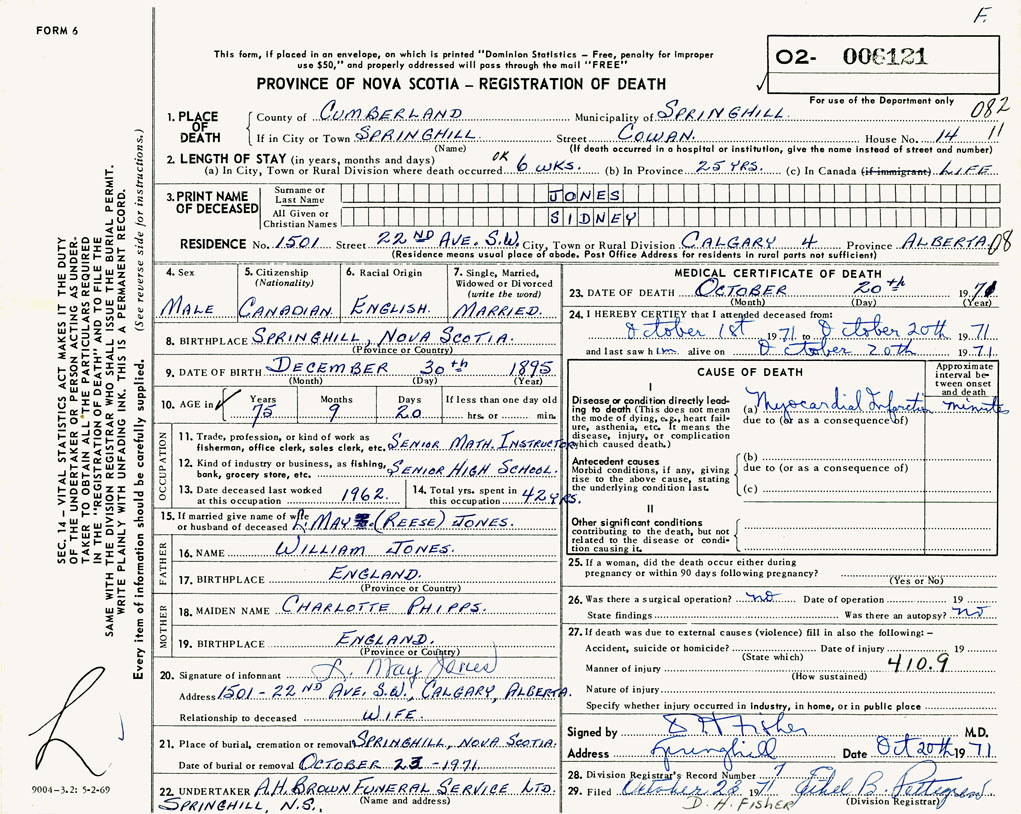 F.
FORM 6
This form, if placed in an envelope, on which is printed "Dominion Statistics – Free, penalty for improper
use $50," and properly addressed will pass through the mail "FREE"
O2- 006121
PROVINCE OF NOVA SCOTIA – REGISTRATION OF DEATH
For use of the Department only
082
11
1. PLACE OF DEATH County of CUMBERLAND Municipality of SPRINGHILL.
If in City or Town SPRINGHILL. Street COWAN. House No. 14
(Name) (If death occurred in a hospital or institution, give the name instead of street and number)
2. LENGTH OF STAY (in years, months and days) OK
(a) In City, Town or Rural Division where death occurred 6 WKS. (b) In Province 25 YRS. (c) In Canada (if immigrant) LIFE
3. PRINT NAME OF DECEASED Surname or Last Name JONES
All Given or Christian Names SIDNEY
RESIDENCE No. 1501 Street 22ND AVE. S.W. City, Town or Rural Division CALGARY 4 Province ALBERTA. 08
(Residence means usual place of abode. Post Office Address for residents in rural parts not sufficient)
4. Sex MALE
5. Citizenship (Nationality) CANADIAN.
6. Racial Origin ENGLISH.
7. Single, Married, Widowed or Divorced (write the word) MARRIED.
8. BIRTHPLACE SPRINGHILL, NOVA SCOTIA.
(Province or Country)
9. DATE OF BIRTH DECEMBER 30th 1895
(Month) (Day) (Year)
10. AGE in Years 75 Months 9 Days 20 If less than one day old hrs. or min.
OCCUPATION
11. Trade, profession, or kind of work as
fisherman, office clerk, sales clerk, etc. SENIOR MATH. INSTRUCTOR
12. Kind of industry or business, as fishing,
bank, grocery store, etc. SENIOR HIGH SCHOOL.
13. Date deceased last worked at this occupation 1962.
14. Total yrs. spent in this occupation 42 YRS.
15. If married give name of wife
or husband of deceased L. MAY (REESE) JONES.
FATHER
16. NAME WILLIAM JONES.
17. BIRTHPLACE ENGLAND.
(Province or Country)
MOTHER
18. MAIDEN NAME CHARLOTTE PHIPPS.
19. BIRTHPLACE ENGLAND.
(Province or Country)
20. Signature of informant L. May Jones
Address 1501 - 22ND AVE. S.W., CALGARY, ALBERTA.
Relationship to deceased WIFE.
21. Place of burial, cremation or removal SPRINGHILL, NOVA SCOTIA.
Date of burial or removal OCTOBER 23 - 1971.
22. UNDERTAKER A.H. BROWN FUNERAL SERVICE LTD.
(Name and address)
SPRINGHILL, N.S.
MEDICAL CERTIFICATE OF DEATH
23. DATE OF DEATH OCTOBER 20th 1971
(Month) (Day) (Year)
24. I HEREBY CERTIFY that I attended deceased from:
October 1st 1971 to October 20th 1971
and last saw him alive on October 20th 1971
CAUSE OF DEATH
Approximate interval between onset and death
I
Disease or condition directly leading to death (This does not mean the mode of dying, e.g., heart failure, asthenia, etc. It means the disease, injury, or complication which caused death.)
(a) Myocardial Infarction minutes
due to (or as a consequence of)
Antecedent causes
Morbid conditions, if any, giving rise to the above cause, stating the underlying condition last.
(b)
due to (or as a consequence of)
(c)
II
Other significant conditions
contributing to the death, but not related to the disease or condition causing it.
25. If a woman, did the death occur either during
pregnancy or within 90 days following pregnancy?
(Yes or No)
26. Was there a surgical operation? no Date of operation 19
State findings Was there an autopsy? no
27. If death was due to external causes (violence) fill in also the following: –
Accident, suicide or homicide? Date of injury 19
(State which)
Manner of injury 410.9
(How sustained)
Nature of injury
Specify whether injury occurred in industry, in home, or in public place
Signed by D H Fisher M.D.
Address Springhill Date Oct 20th 1971
28. Division Registrar's Record Number 7
29. Filed October 23 1971 Ethel B.
D. H. FISHER (Division Registrar)
SEC. 14 – VITAL STATISTICS ACT MAKES IT THE DUTY
OF THE UNDERTAKER OR PERSON ACTING AS UNDER-
TAKER TO OBTAIN ALL THE PARTICULARS REQUIRED
IN THE "REGISTRATION OF DEATH" AND TO FILE THE
SAME WITH THE DIVISION REGISTRAR WHO SHALL ISSUE THE BURIAL PERMIT.
WRITE PLAINLY WITH UNFADING INK. THIS IS A PERMANENT RECORD.
Every item of information should be carefully supplied. (See reverse side for instructions.)
9004-3.2: 5-2-69